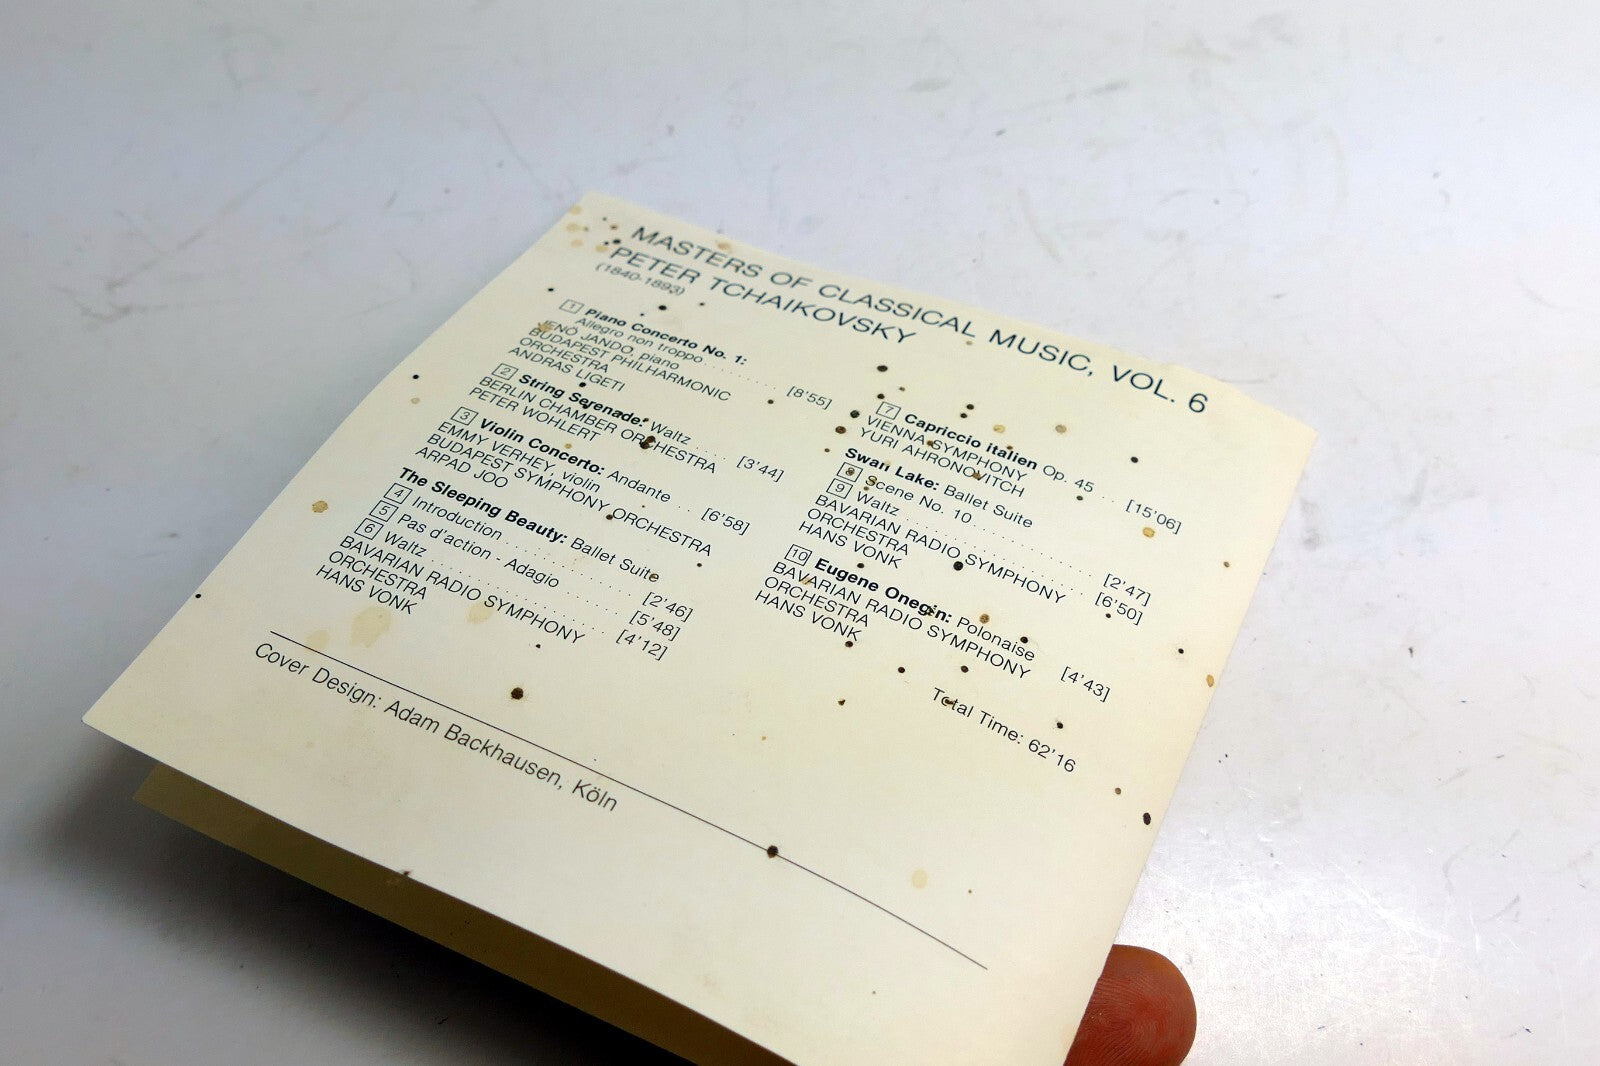 MASTERS OF CLASSICAL MUSIC, VOL. 6
PETER TCHAIKOVSKY
(1840-1893)
1 Piano Concerto No. 1:
Allegro non troppo .......... [8'55]
JENÖ JANDO, piano
BUDAPEST PHILHARMONIC
ORCHESTRA
ANDRAS LIGETI
2 String Serenade: Waltz .... [3'44]
BERLIN CHAMBER ORCHESTRA
PETER WOHLERT
3 Violin Concerto: Andante .. [6'58]
EMMY VERHEY, violin
BUDAPEST SYMPHONY ORCHESTRA
ARPAD JOO
The Sleeping Beauty: Ballet Suite
4 Introduction .............. [2'46]
5 Pas d'action - Adagio ....... [5'48]
6 Waltz .................... [4'12]
BAVARIAN RADIO SYMPHONY
ORCHESTRA
HANS VONK
7 Capriccio italien Op. 45 .. [15'06]
VIENNA SYMPHONY
YURI AHRONOVITCH
Swan Lake: Ballet Suite
8 Scene No. 10 .............. [2'47]
9 Waltz ..................... [6'50]
BAVARIAN RADIO SYMPHONY
ORCHESTRA
HANS VONK
10 Eugene Onegin: Polonaise [4'43]
BAVARIAN RADIO SYMPHONY
ORCHESTRA
HANS VONK
Total Time: 62'16
Cover Design: Adam Backhausen, Köln